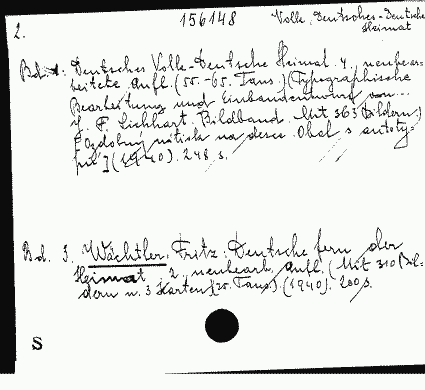 2.
156148
Volk, Deutsches - Deutsche
Heimat
Bd. 1. Deutsches Volk - Deutsche Heimat. 4., neubear-
beitete Aufl. (55.-65. Taus.) (Typographische
Bearbeitung und Einbandentwurf von
F. Lickhart. Bildband. Mit 363 Bildern.)
[Ozdobný nátisk na desce. Obál. s autoty-
pií] (1940). 248 s.
Bd. 3. Wächtler, Fritz: Deutsche fern der
Heimat. 2., neubearb. Aufl. (Mit 310 Bil-
dern u. 3 Karten) (20. Taus.) (1940). 200 s.
S